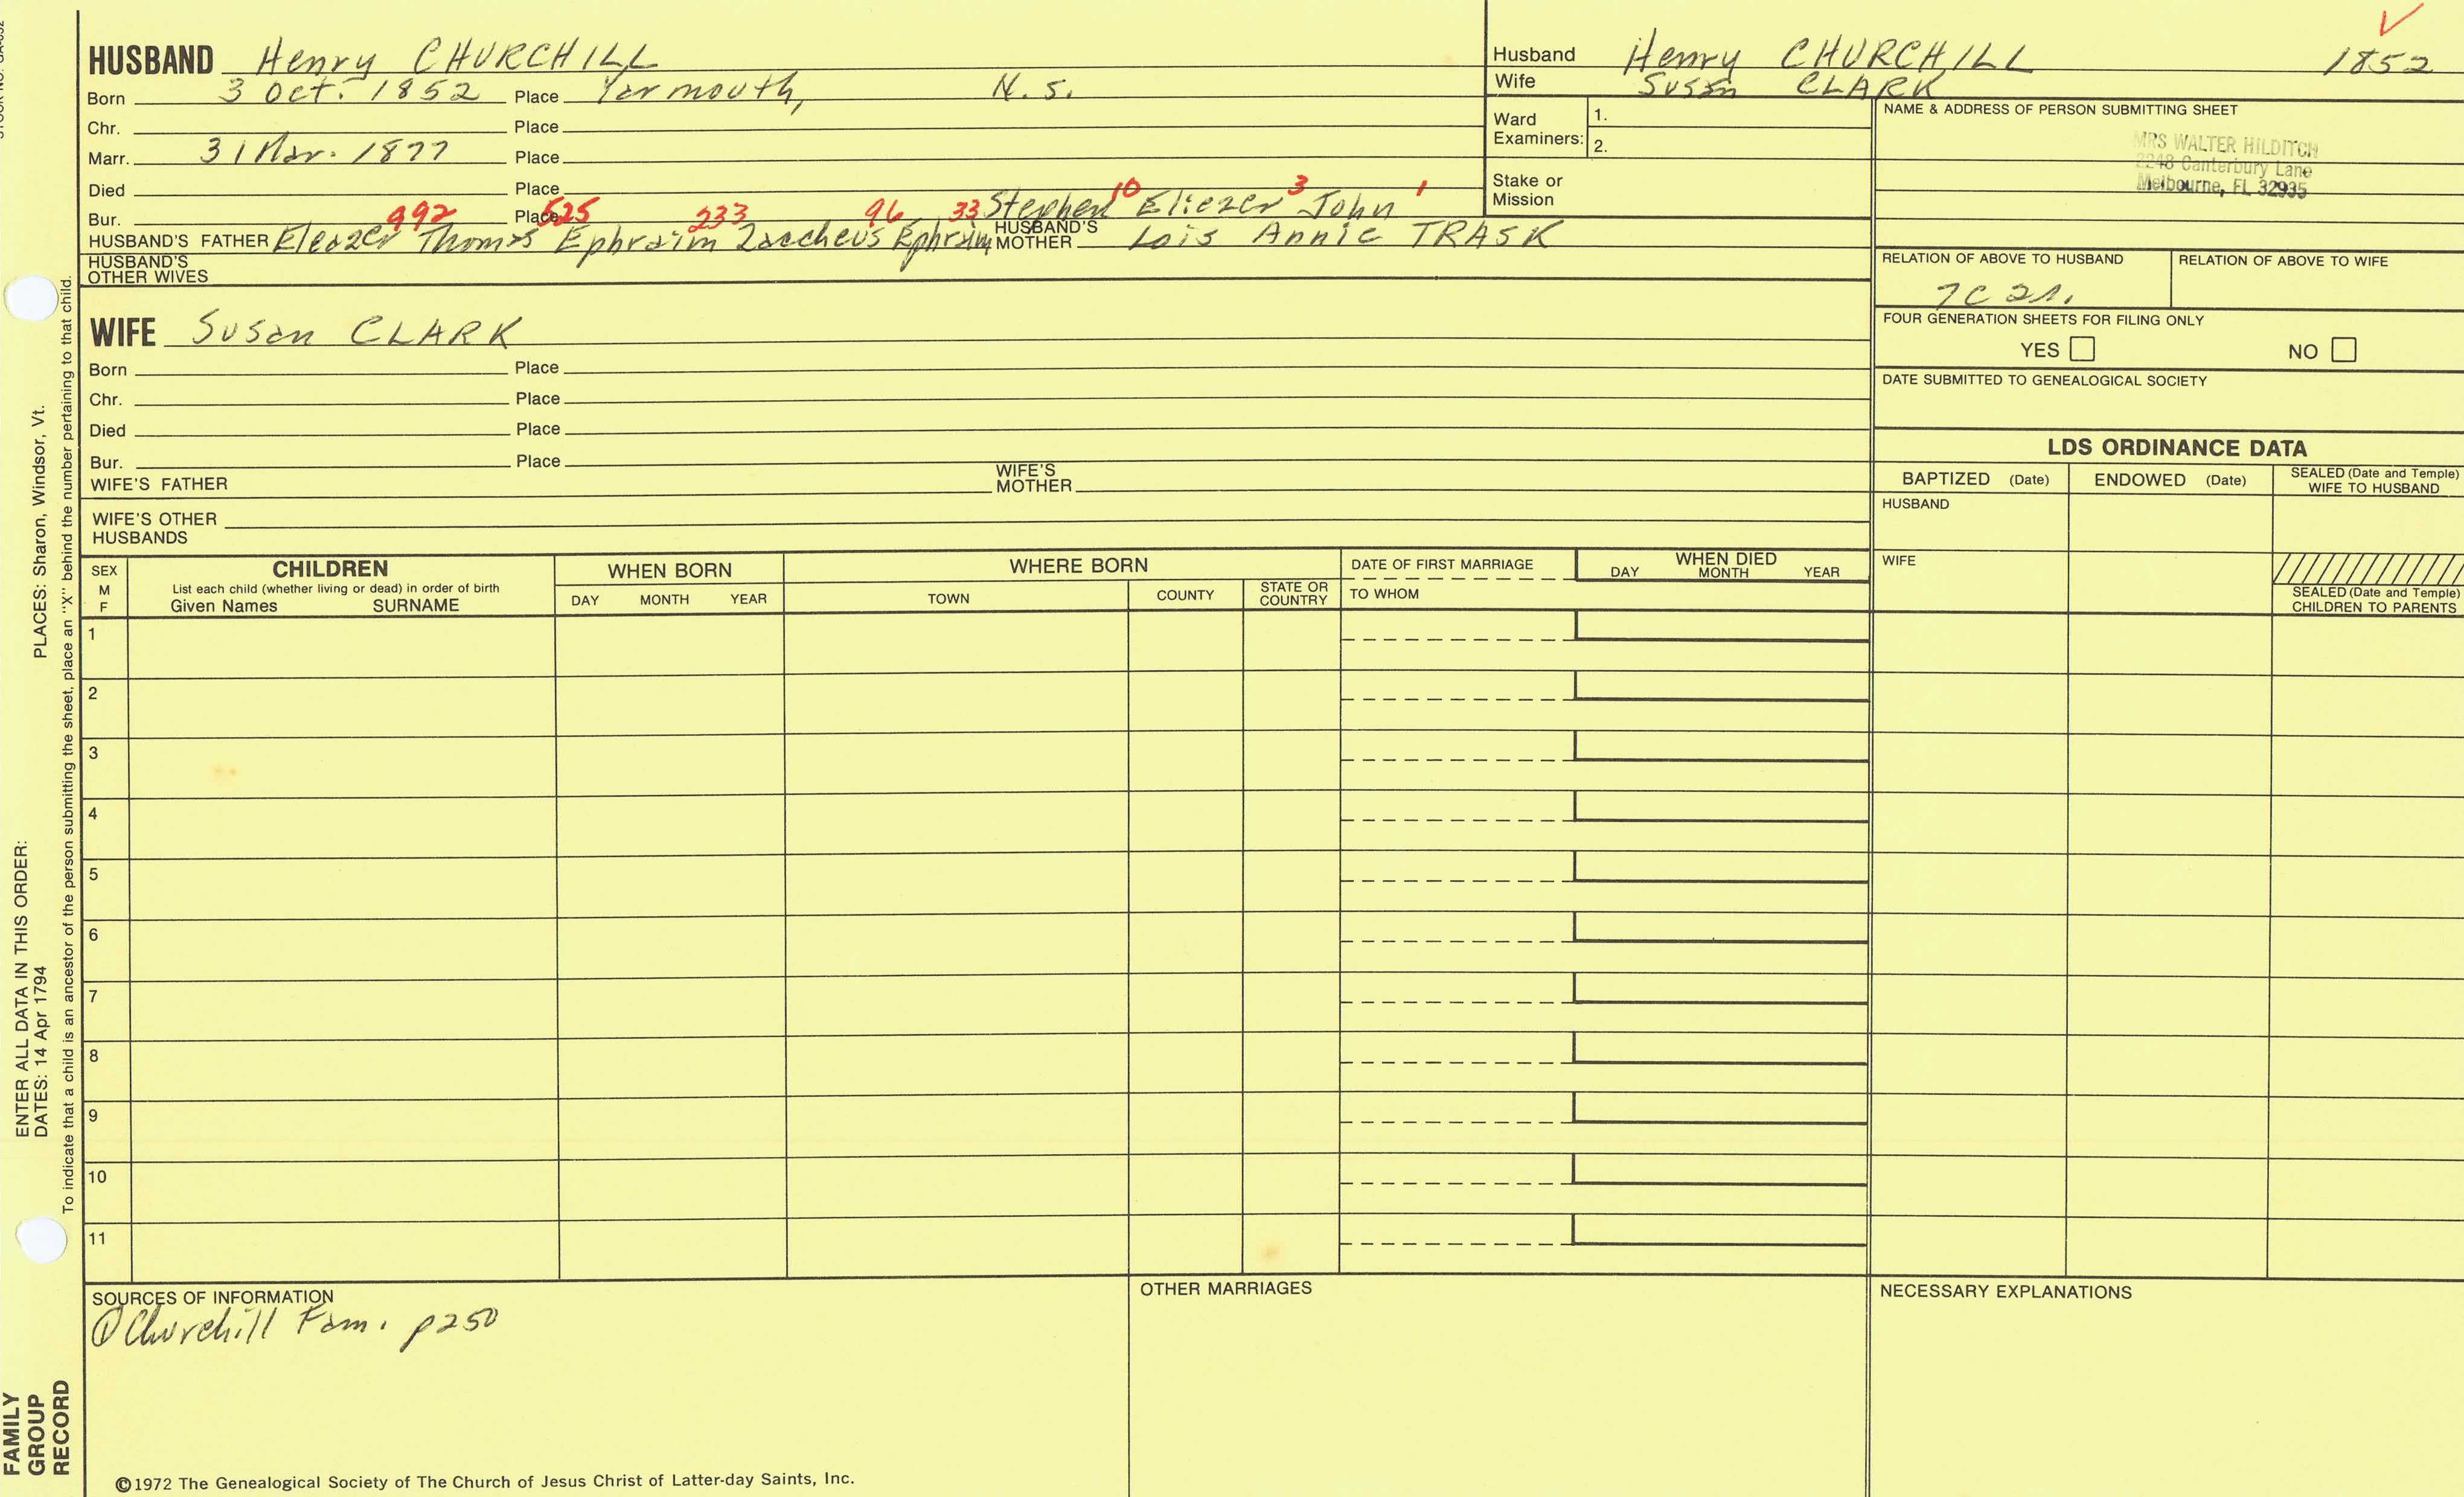 HUSBAND Henry CHURCHILL
Born 3 Oct. 1852 Place Yarmouth, N.S.
Chr. Place
Marr. 31 Mar. 1877 Place
Died Place
Bur. Place
992 525 233 96 33 Stephen 10 Eliezer 3 John 1
HUSBAND'S FATHER Eleazer Thomas Ephraim Zaccheus Ephraim HUSBAND'S MOTHER Lois Annie TRASK
HUSBAND'S OTHER WIVES
WIFE Susan CLARK
Born Place
Chr. Place
Died Place
Bur. Place
WIFE'S FATHER WIFE'S MOTHER
WIFE'S OTHER HUSBANDS
Husband Henry CHURCHILL 1852
Wife Susan CLARK
Ward Examiners: 1.
2.
Stake or Mission
NAME & ADDRESS OF PERSON SUBMITTING SHEET
MRS WALTER HILDITCH
2248 Canterbury Lane
Melbourne, FL 32935
RELATION OF ABOVE TO HUSBAND RELATION OF ABOVE TO WIFE
7C 2r.
FOUR GENERATION SHEETS FOR FILING ONLY
YES NO
DATE SUBMITTED TO GENEALOGICAL SOCIETY
LDS ORDINANCE DATA
BAPTIZED (Date) ENDOWED (Date) SEALED (Date and Temple) WIFE TO HUSBAND
HUSBAND
WIFE
SEALED (Date and Temple) CHILDREN TO PARENTS
SEX M F
CHILDREN
List each child (whether living or dead) in order of birth
Given Names SURNAME
WHEN BORN
DAY MONTH YEAR
WHERE BORN
TOWN COUNTY STATE OR COUNTRY
DATE OF FIRST MARRIAGE
TO WHOM
WHEN DIED
DAY MONTH YEAR
1
2
3
4
5
6
7
8
9
10
11
SOURCES OF INFORMATION
① Churchill Fam. p250
OTHER MARRIAGES
NECESSARY EXPLANATIONS
©1972 The Genealogical Society of The Church of Jesus Christ of Latter-day Saints, Inc.
FAMILY GROUP RECORD
ENTER ALL DATA IN THIS ORDER:
DATES: 14 Apr 1794 PLACES: Sharon, Windsor, Vt.
To indicate that a child is an ancestor of the person submitting the sheet, place an "X" behind the number pertaining to that child.